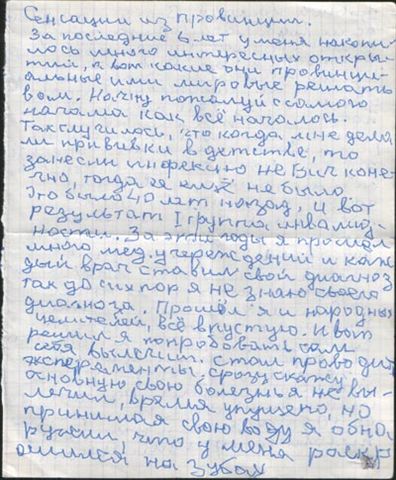 Сенсации из провинции.
За последние 6 лет у меня накопи-
лось много интересных откры-
тий, а вот какие они провинци-
альные или мировые решать
вам. Начну пожалуй с самого
начала как всё началось.
Так случилось, что когда мне дела
ли прививки в детстве, то
занесли инфекцию не Вич коне-
чно, тогда её ещё не было
Это было 40 лет назад, и вот
результат I группа инвалид-
ности. За эти годы я прошёл
много мед. учереждений и каж
дый врач ставил свой диагноз
так до сих пор я не знаю своего
диагноза. Прошёл я и народных
целителей, всё впустую. И вот
решил я попробовать сам
себя вылечит. Стал проводит
эксперементы. Сразу скажу
основную свою болезнь я не вы-
лечил, время упущено, но
принимая свою воду я обна
ружил, что у меня раскр
ошился на зубах